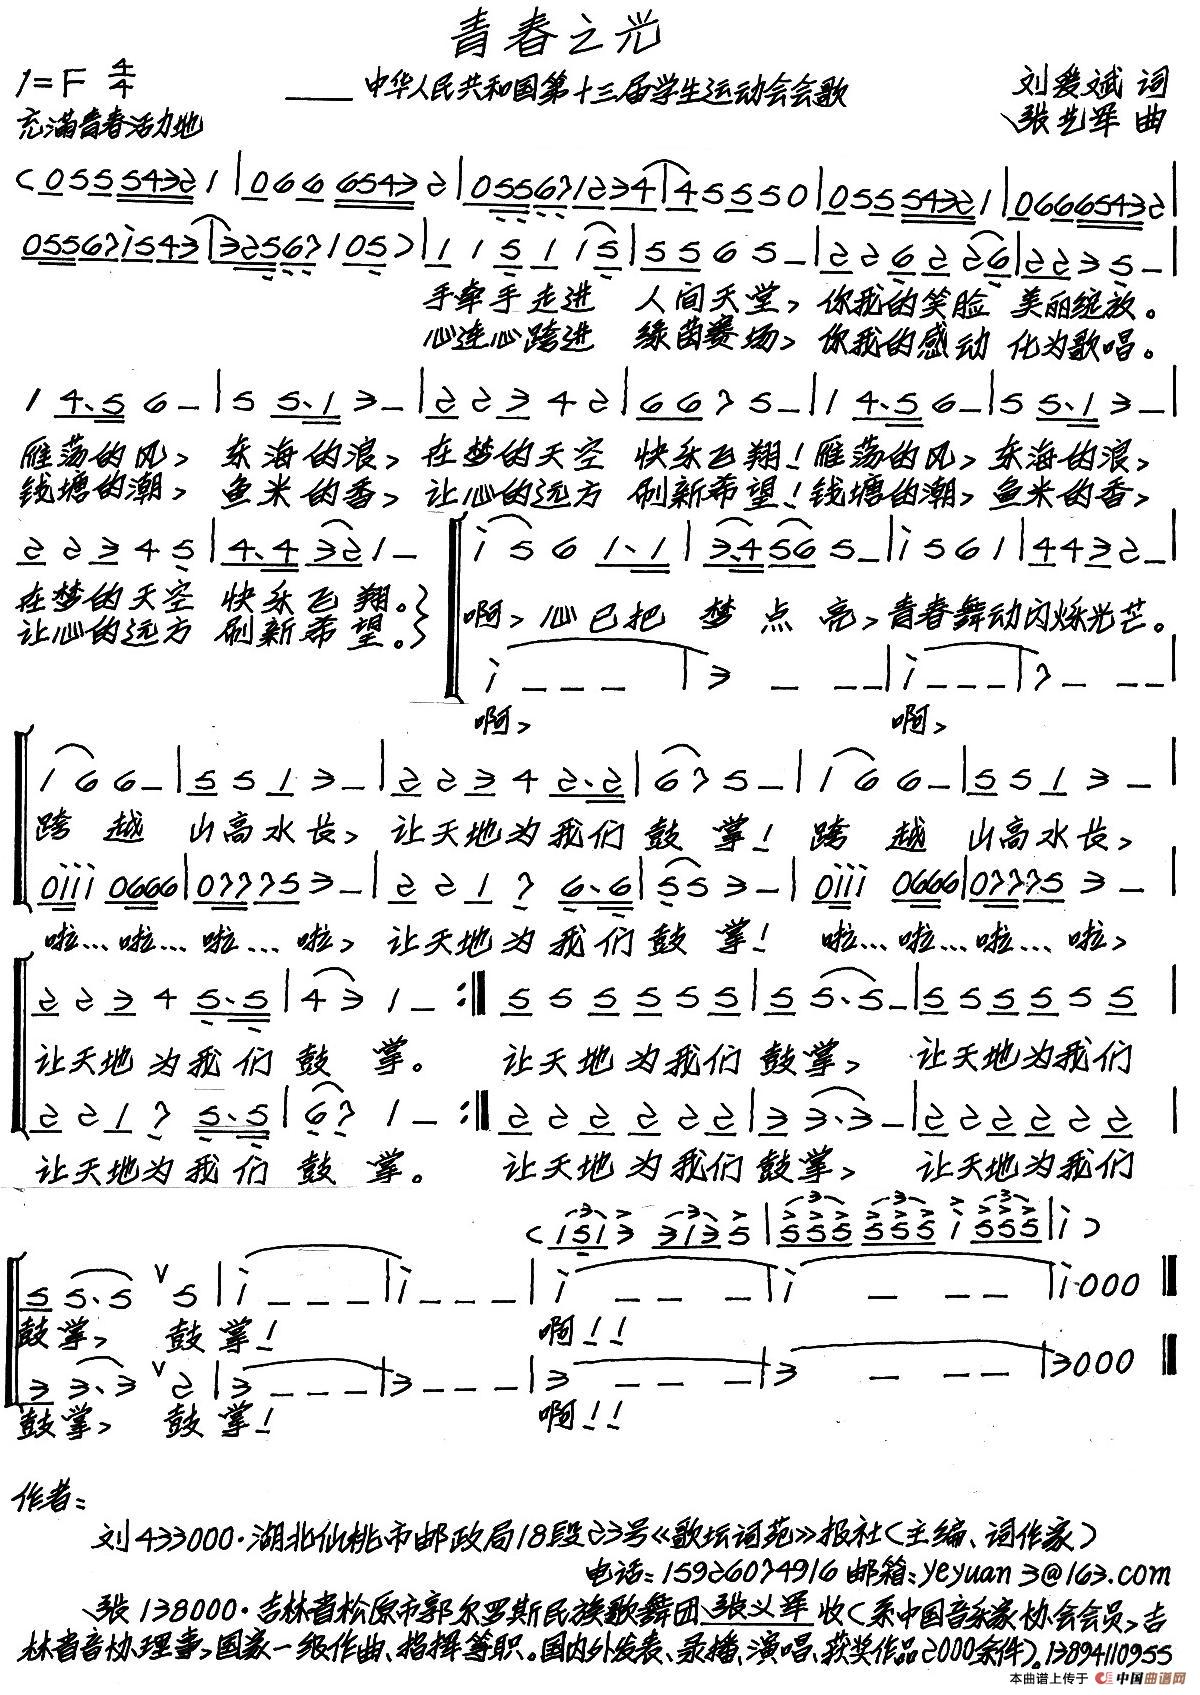 青春之光
1=F 4/4
——中华人民共和国第十三届学生运动会会歌
刘爱斌 词
充满青春活力地
张艺军 曲
(055554321|066 65432|0556712344|45550|0555 54321|06665432|
05567i543|325671 05)|1 1 5 1 i5|5 5 6 5 –|2 2 6 2 26|2 2 3 5 –|
手牵手走进 人间天堂, 你我的笑脸 美丽绽放。
心连心跨进 绿茵赛场, 你我的感动 化为歌唱。
1 4.5 6 –|5 5.1 3 –|2 2 3 4 2|6 6 7 5 –|1 4.5 6 –|5 5.1 3 –|
雁荡的风, 东海的浪, 在梦的天空 快乐飞翔!雁荡的风, 东海的浪,
钱塘的潮, 鱼米的香, 让心的远方 刷新希望!钱塘的潮, 鱼米的香,
2 2 3 4 5|4.4 32 1 –|i 5 6 1.1|3.4 56 5 –|i 5 6 1|4 4 3 2 –|
在梦的天空 快乐飞翔。
让心的远方 刷新希望。
啊, 心已把 梦 点 亮, 青春舞动闪烁光芒。
i – – –|3 – – –|i – – –|7 – – –|
啊, 啊,
1 6 6 –|5 5 1 3 –|2 2 3 4 2.2|6 7 5 –|1 6 6 –|5 5 1 3 –|
跨 越 山高水长, 让天地为我们 鼓 掌! 跨 越 山高水长,
0iii 0666|07775 3 –|2 2 1 7 6.6|5 5 3 –|0iii 0666|07775 3 –|
啦…啦…啦…啦, 让天地为我们鼓 掌! 啦…啦…啦…啦,
2 2 3 4 5.5|4 3 1 – :‖ 5 5 5 5 5 5|5 5.5 –|5 5 5 5 5 5|
让天地为我们 鼓 掌。 让天地为我们鼓掌, 让天地为我们
2 2 1 7 5.5|6 7 1 – :‖ 2 2 2 2 2 2|3 3.3 –|2 2 2 2 2 2|
让天地为我们 鼓 掌。 让天地为我们鼓掌, 让天地为我们
(151 3 313 5|555 555 i 555|i)
5 5.5 ∨ 5|i – – –|i – – –|i – – –|i – – –|i.000‖
鼓掌, 鼓掌! 啊!!
3 3.3 ∨ 2|3 – – –|3 – – –|3 – – –|3 – – –|3000‖
鼓掌, 鼓掌! 啊!!
作者:
刘433000·湖北仙桃市邮政局18段23号《歌坛词苑》报社(主编、词作家)
电话:15926074916 邮箱:yeyuan3@163.com
张138000·吉林省松原市郭尔罗斯民族歌舞团张义军收(系中国音乐家协会会员,吉
林省音协理事,国家一级作曲、指挥等职。国内外发表、录播、演唱、获奖作品2000余件)。13894110955
本曲谱上传于 中国曲谱网